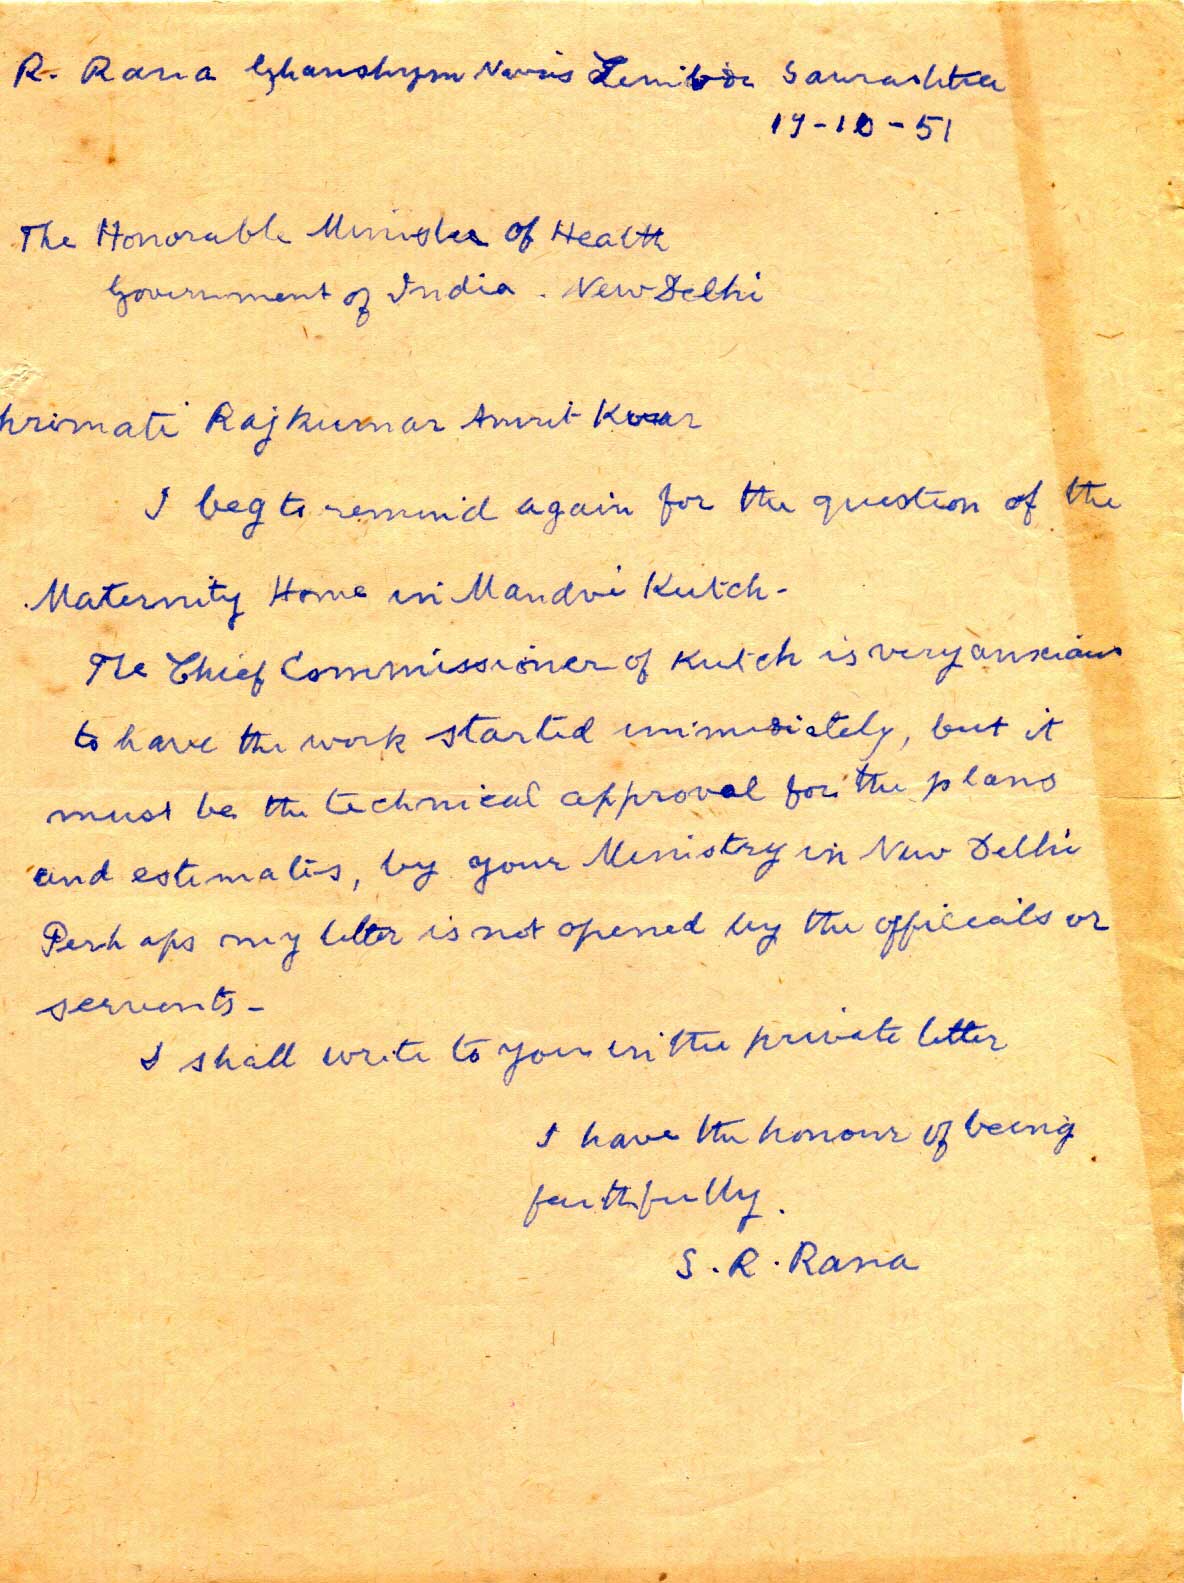 R. Rana Ghanshyam Nevas Limbda Saurashtra
19-10-51
The Honorable Minister of Health
Government of India. New Delhi
hrimati Rajkumar Amrit Kuar
I beg to remind again for the question of the
Maternity Home in Mandvi Kutch-
The Chief Commissioner of Kutch is very anxious
to have the work started immediately, but it
must be the technical approval for the plans
and estimates, by your Ministry in New Delhi
Perhaps my letter is not opened by the officials or
servants-
I shall write to you in the private letter
I have the honour of being
faithfully.
S. R. Rana